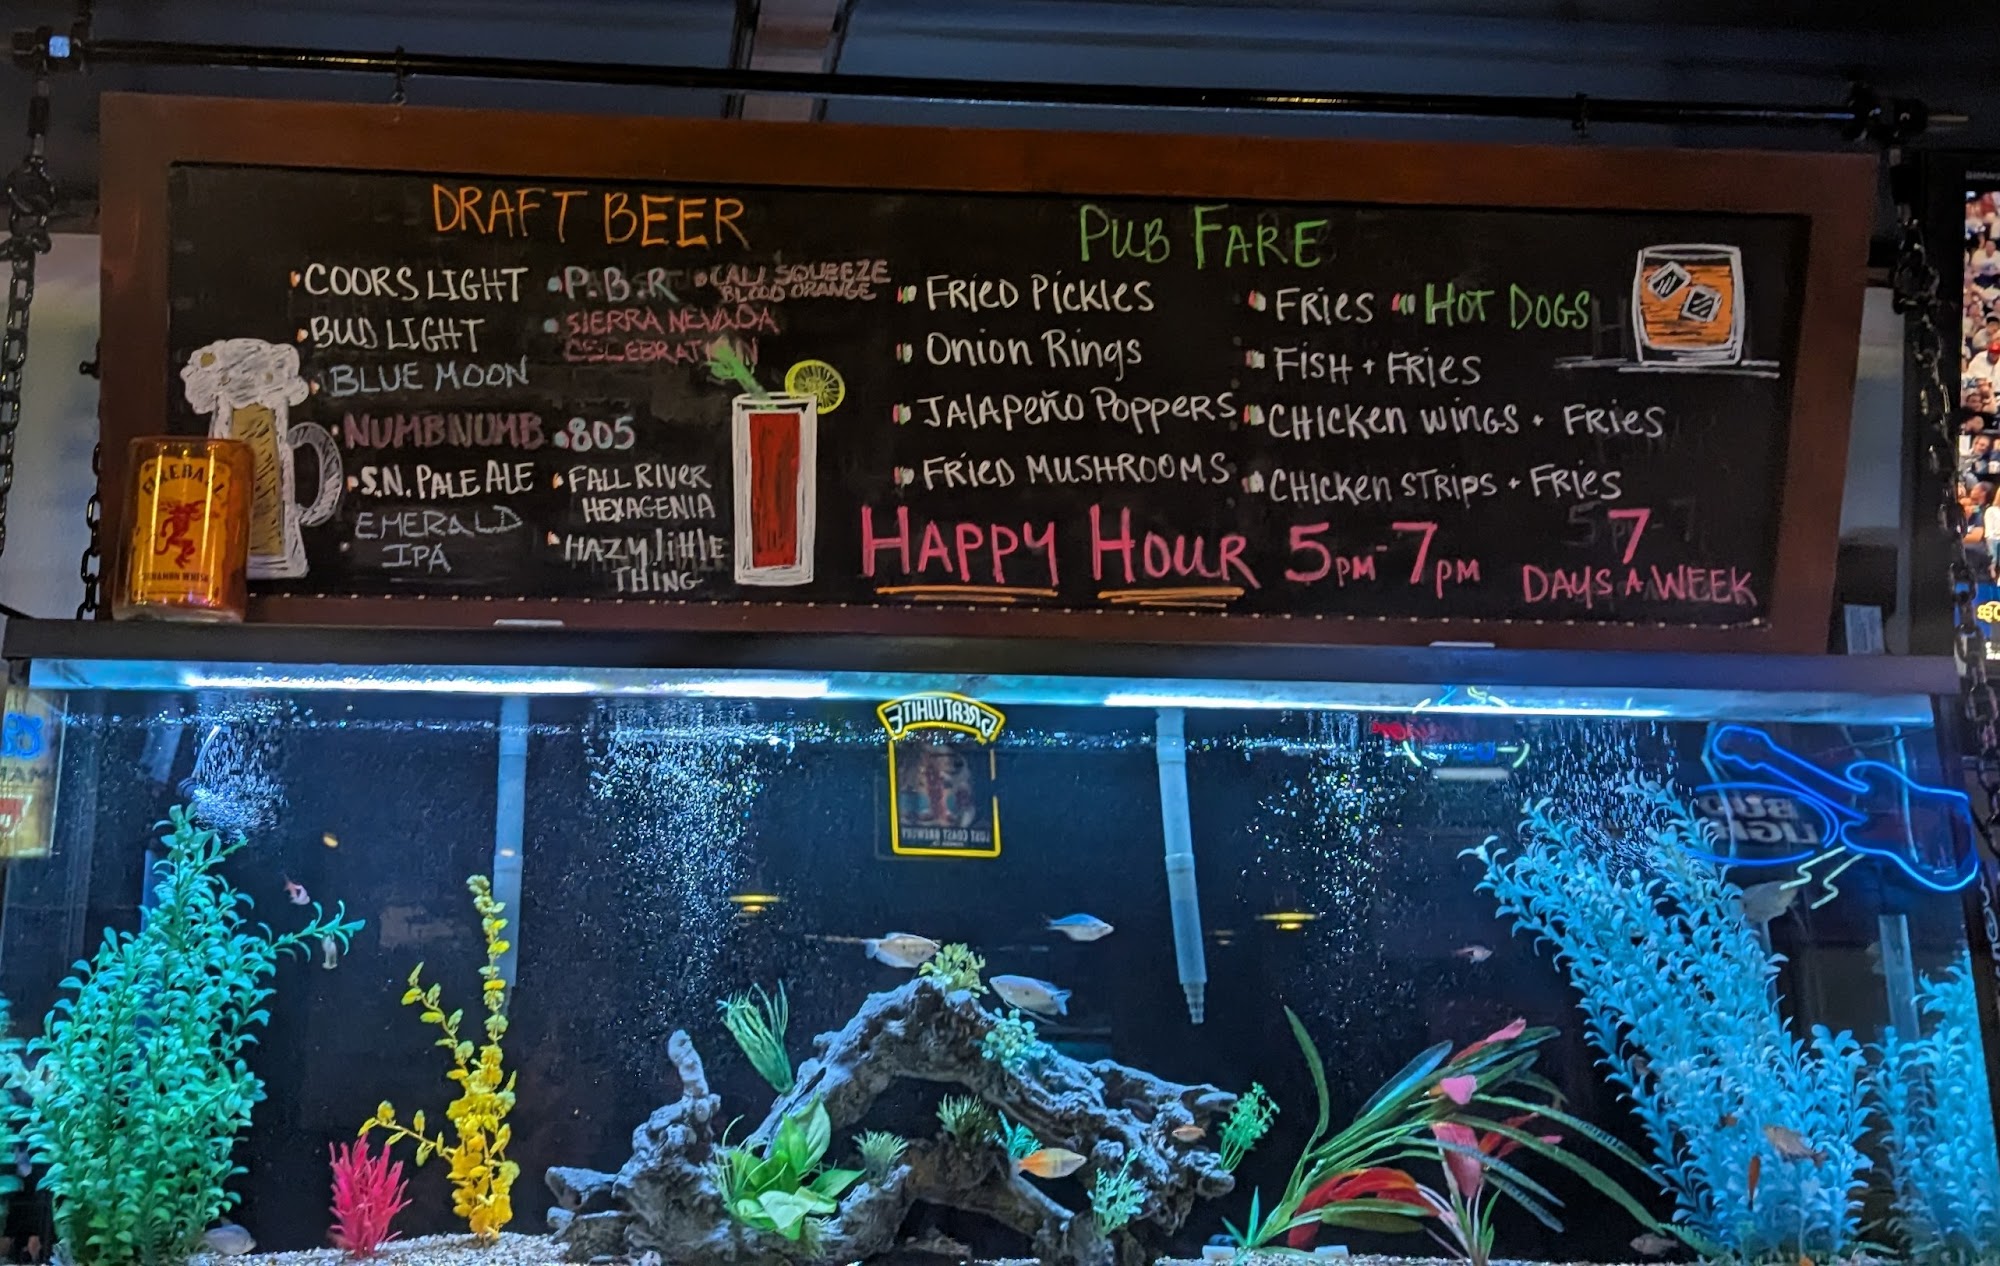 DRAFT BEER
• COORS LIGHT
• BUD LIGHT
• BLUE MOON
• NUMBNUMB
• S.N. PALE ALE
• EMERALD
IPA
• P.B.R
• CALI SQUEEZE
BLOOD ORANGE
• SIERRA NEVADA
CELEBRATION
• 805
• FALL RIVER
HEXAGENIA
• HAZY little
THING
PUB FARE
FRied PickLes
Onion Rings
JALAPeñO POPPERS
FRied MUSHROOMS
FRies
HOT DOGS
FiSH + FRies
CHicken wings + FRies
CHicken STRiPS + FRies
HAPPY HOUR 5PM - 7PM
7
DAYS A WEEK
FIREBALL
CINNAMON WHISKY
GREAT WHITE
LOST COAST BREWERY
BUD
LIGHT